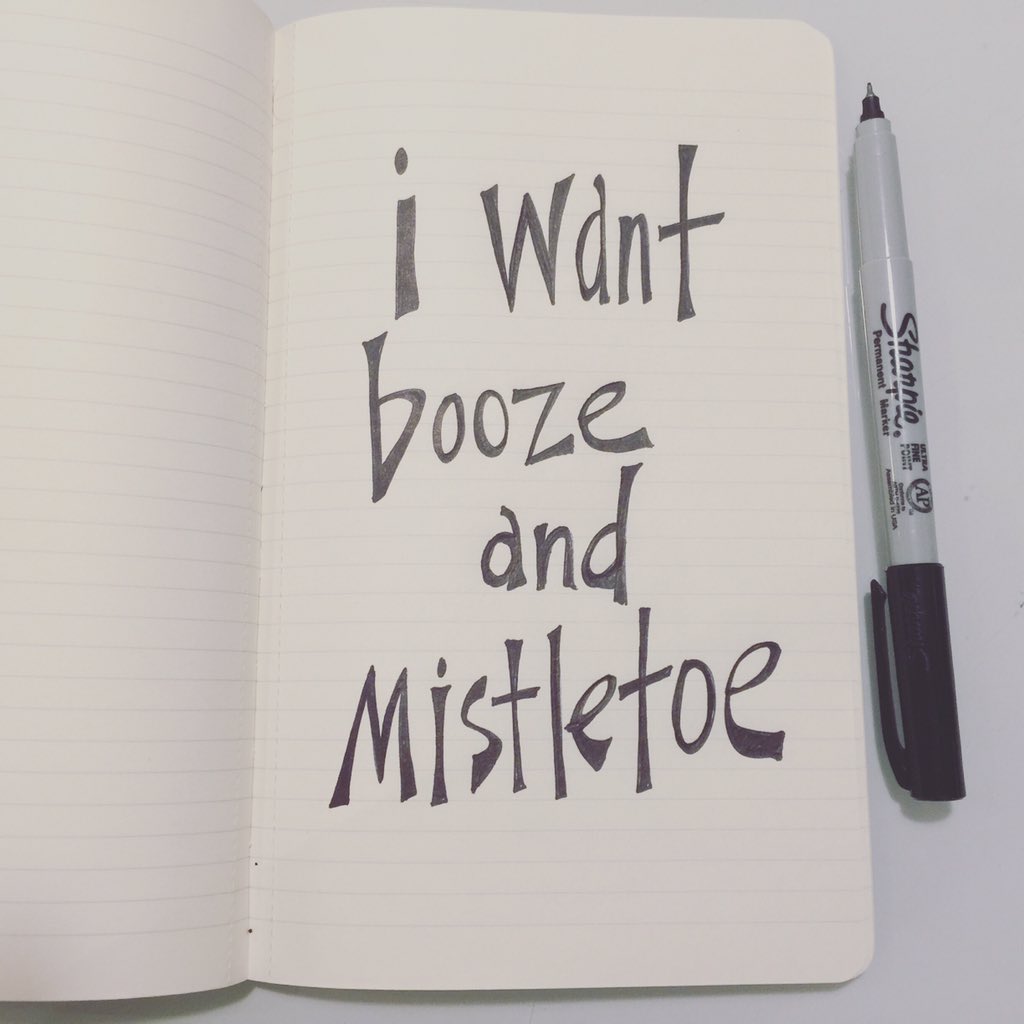 i want
booze
and
Mistletoe
Sharpie.
Permanent Marker
ULTRA
FINE
POINT
AP
Assembled in USA